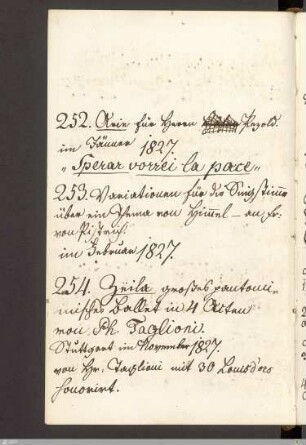 252. Arie für Herrn Pezold.
im Jänner 1827.
"Sperar vorrei la pace"
253. Variationen für die Singstimme
über ein Thema von Himmel – an Fr:
von Pistrich.
im Februar 1827.
254. Zeila großes pantomi-
misches Ballet in 4 Akten
von Ph. Taglioni
Stuttgart im November 1827.
von Hr. Taglioni mit 30 Louisd'ors
honorirt.